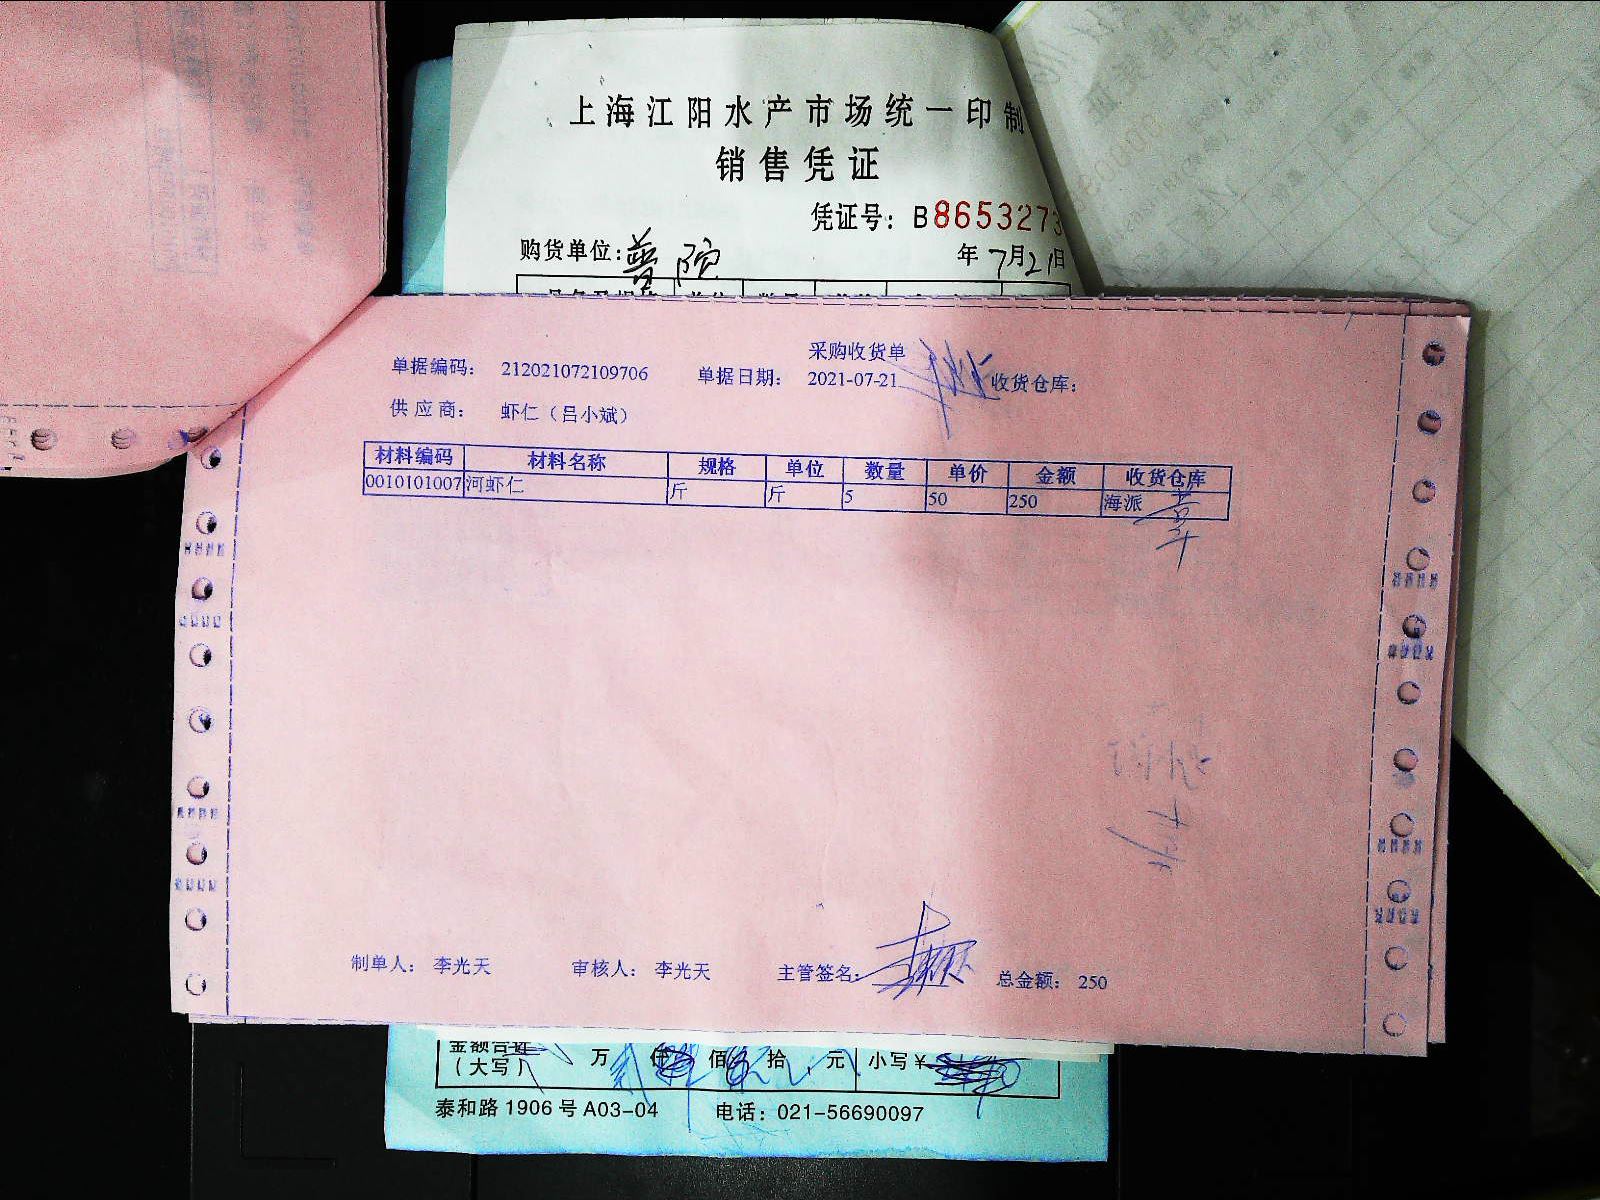 上海江阳水产市场统一印制
销售凭证
凭证号：B8653273
购货单位：普陀 年7月21日
采购收货单
单据编码： 212021072109706 单据日期： 2021-07-21 收货仓库：
供应商： 虾仁（吕小斌）
材料编码 材料名称 规格 单位 数量 单价 金额 收货仓库
0010101007 河虾仁 斤 斤 5 50 250 海派
制单人： 李光天 审核人： 李光天 主管签名： 总金额： 250
金额合计 万 仟 佰 拾 元 小写￥
（大写）
泰和路1906号A03-04 电话：021-56690097